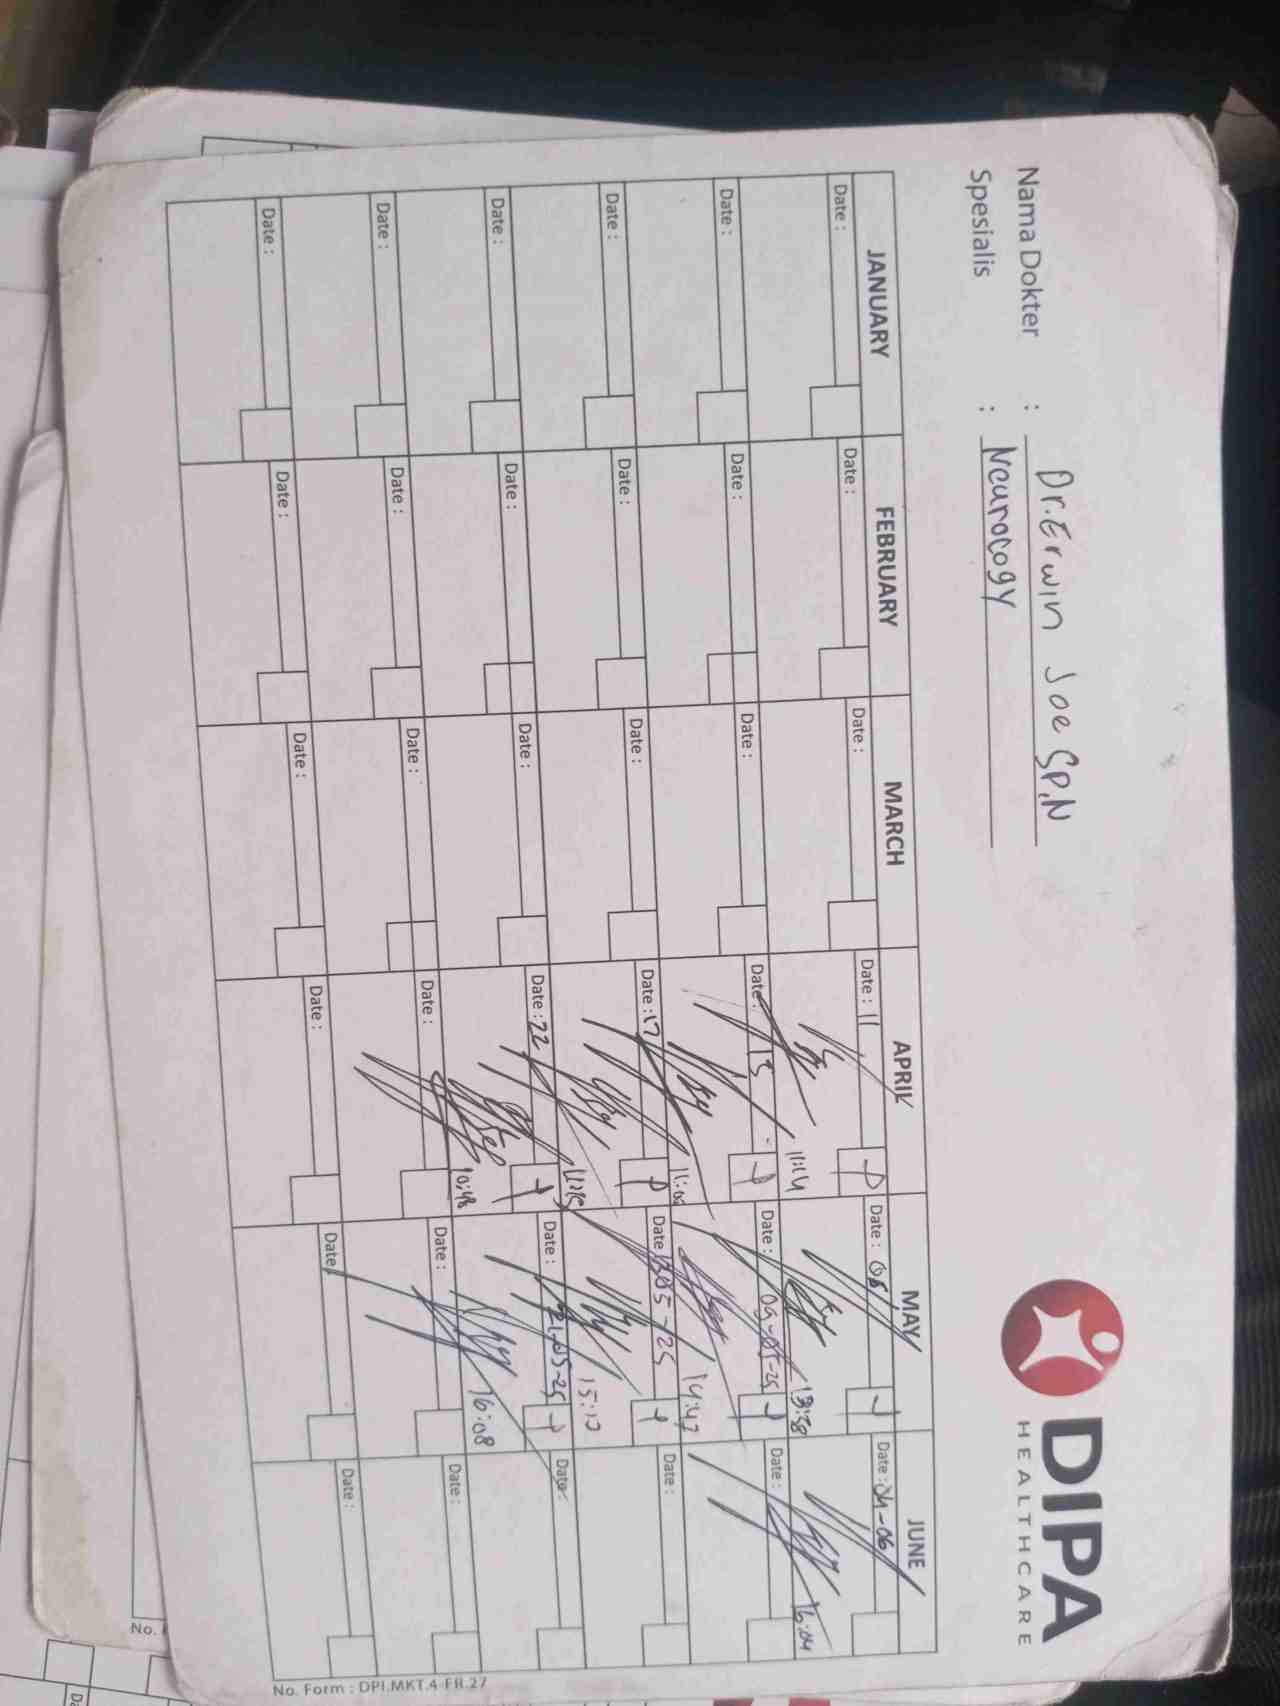 DIPA
HEALTHCARE
Nama Dokter : Dr. Erwin Joe SP.N
Spesialis : Neurology
JANUARY FEBRUARY MARCH APRIL MAY JUNE
Date : Date : Date : Date : 11 Date : Date : 04-06
11:14 13:38 16:04
Date : Date : Date : Date : 15 Date : 09-05-25 Date :
14:47
Date : Date : Date : Date : 17 Date Date :
15:17
Date : Date : Date : Date : 22 Date : 21-05-25 Date :
10:48 16:08
Date : Date : Date : Date : Date : Date :
Date : Date : Date : Date : Date Date :
No. Form : DPI.MKT.4-FR.27
No.